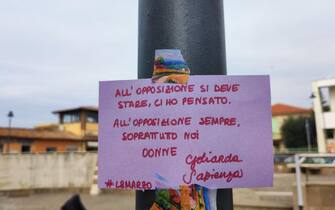 ALL'OPPOSIZIONE SI DEVE
STARE, CI HO PENSATO.
ALL'OPPOSIZIONE SEMPRE,
SOPRATTUTTO NOI
DONNE Goliarda
#L8MARZO Sapienza